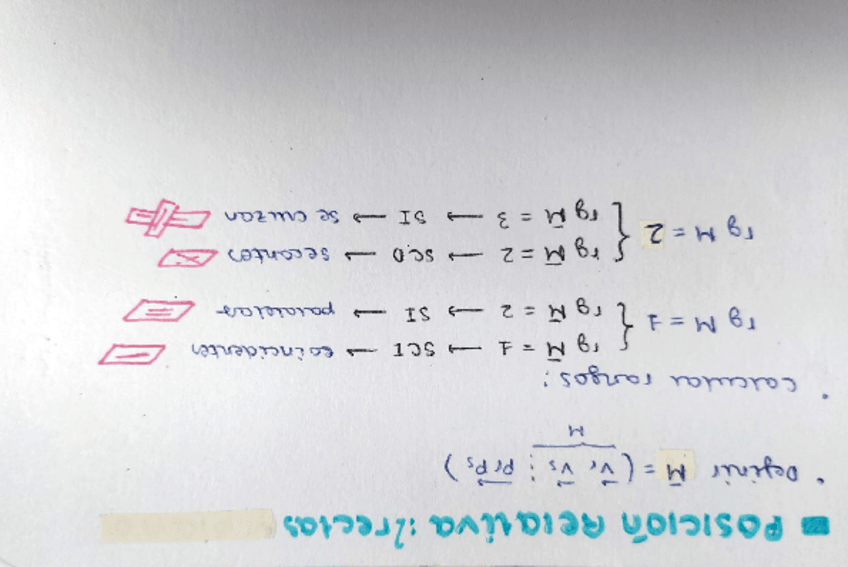 POSICIÓN RELATIVA: 2 rectas
• Definir M̄ = ( v⃗r v⃗s ⋮ PrPs⃗ )
M
• Calcular rangos:
rg M = 1 { rg M̄ = 1 → SCI → coincidentes
rg M̄ = 2 → SI → paralelas
rg M = 2 { rg M̄ = 2 → SCD → secantes
rg M̄ = 3 → SI → se cruzan